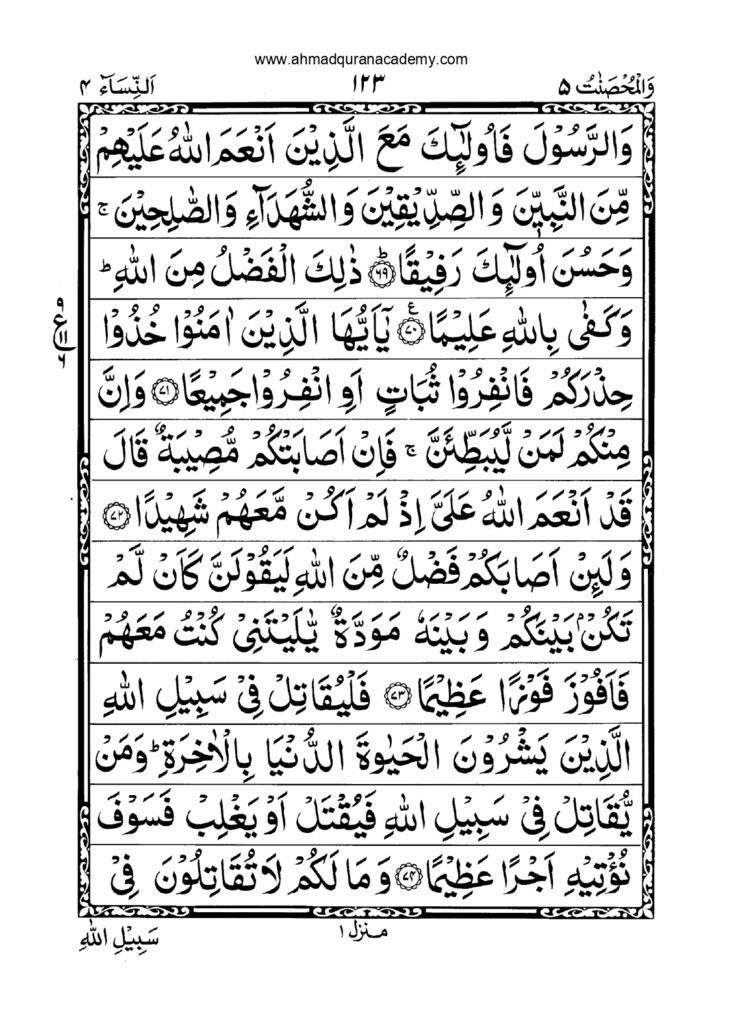 www.ahmadquranacademy.com
وَالْمُحْصَنٰتُ ۵ ١٢٣ اَلنِّسَآءِ ۴
وَالرَّسُوْلَ فَاُولٰٓئِكَ مَعَ الَّذِيْنَ اَنْعَمَ اللّٰهُ عَلَيْهِمْ
مِّنَ النَّبِيّٖنَ وَالصِّدِّيْقِيْنَ وَالشُّهَدَآءِ وَالصّٰلِحِيْنَ ۚ
وَحَسُنَ اُولٰٓئِكَ رَفِيْقًا ؕ‏﴿۶۹﴾ ذٰلِكَ الْفَضْلُ مِنَ اللّٰهِ ؕ
وَكَفٰى بِاللّٰهِ عَلِيْمًا ﴿۷۰﴾ ع يٰۤاَيُّهَا الَّذِيْنَ اٰمَنُوْا خُذُوْا
۹ ع ۱۱ ۶
حِذْرَكُمْ فَانْفِرُوْا ثُبَاتٍ اَوِ انْفِرُوْا جَمِيْعًا ﴿۷۱﴾ وَاِنَّ
مِنْكُمْ لَمَنْ لَّيُبَطِّئَنَّ ۚ فَاِنْ اَصَابَتْكُمْ مُّصِيْبَةٌ قَالَ
قَدْ اَنْعَمَ اللّٰهُ عَلَيَّ اِذْ لَمْ اَكُنْ مَّعَهُمْ شَهِيْدًا ﴿۷۲﴾
وَلَئِنْ اَصَابَكُمْ فَضْلٌ مِّنَ اللّٰهِ لَيَقُوْلَنَّ كَاَنْ لَّمْ
تَكُنْۢ بَيْنَكُمْ وَبَيْنَهٗ مَوَدَّةٌ يّٰلَيْتَنِيْ كُنْتُ مَعَهُمْ
فَاَفُوْزَ فَوْزًا عَظِيْمًا ﴿۷۳﴾ فَلْيُقَاتِلْ فِيْ سَبِيْلِ اللّٰهِ
الَّذِيْنَ يَشْرُوْنَ الْحَيٰوةَ الدُّنْيَا بِالْاٰخِرَةِ ؕ وَمَنْ
يُّقَاتِلْ فِيْ سَبِيْلِ اللّٰهِ فَيُقْتَلْ اَوْ يَغْلِبْ فَسَوْفَ
نُؤْتِيْهِ اَجْرًا عَظِيْمًا ﴿۷۴﴾ وَمَا لَكُمْ لَا تُقَاتِلُوْنَ فِيْ
منزل ١
سَبِيْلِ اللّٰهِ